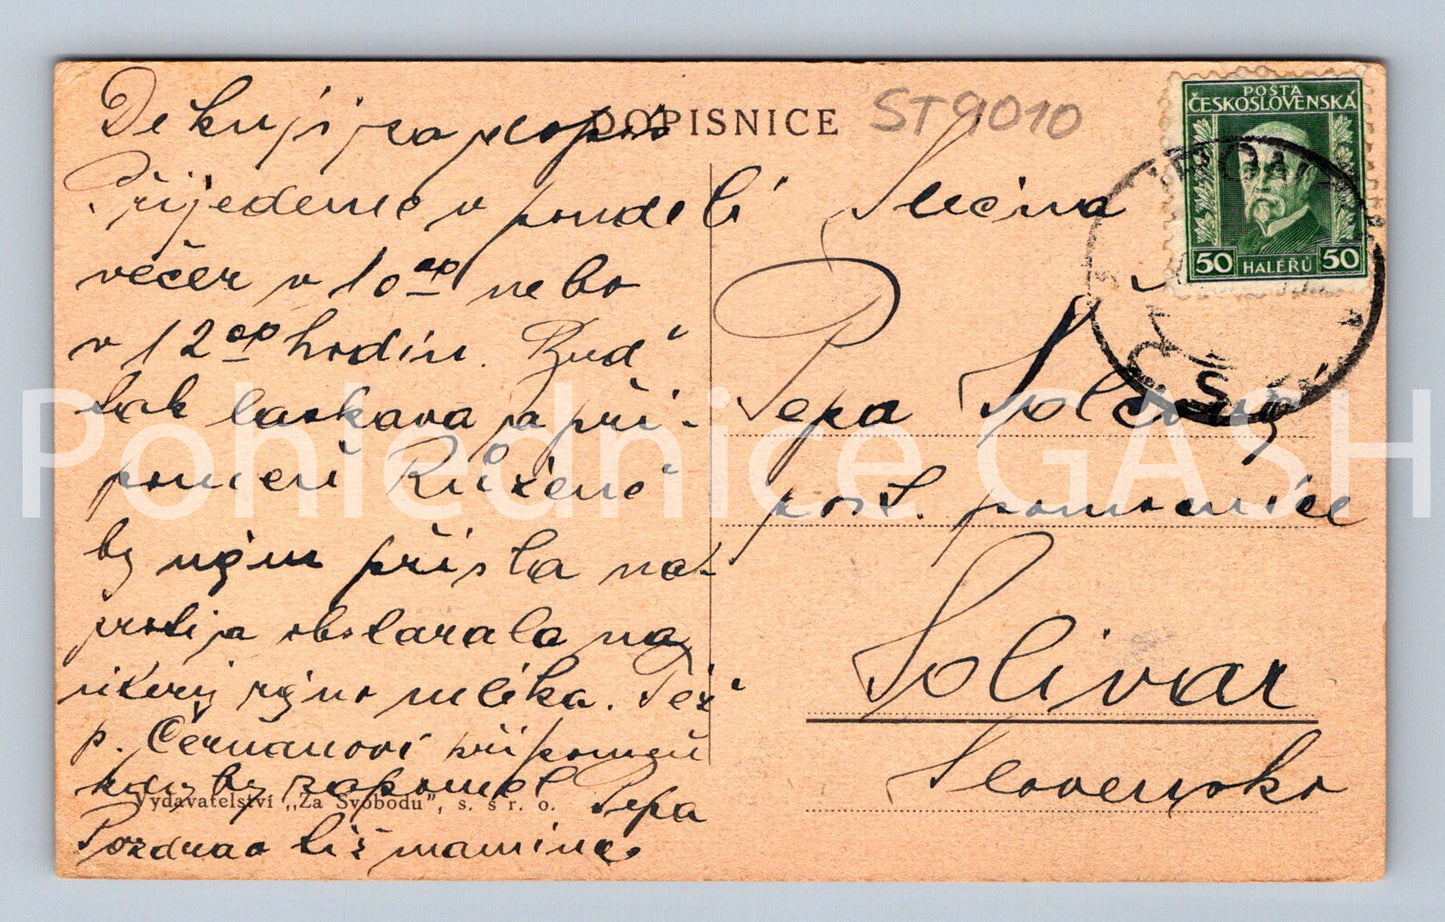 DOPISNICE
ST9010
POŠTA
ČESKOSLOVENSKÁ
50 HALÉŘŮ 50
Děkuji za dopis
Přijedeme v pondělí
večer v 10 nebo
v 12 hodin. Buď
tak laskava a při-
pomeň Růženě
by nám přišla na-
a obstarala na
ráno mléka. Též
p. Čermanovi připomeň
by zapomněl Pepa
Pozdrav též mamince
Vydavatelství „Za Svobodu", s. s r. o.
Slečna
Pepa
pošt. pomocnice
Solivar
Slovensko
Pohlednice GASH